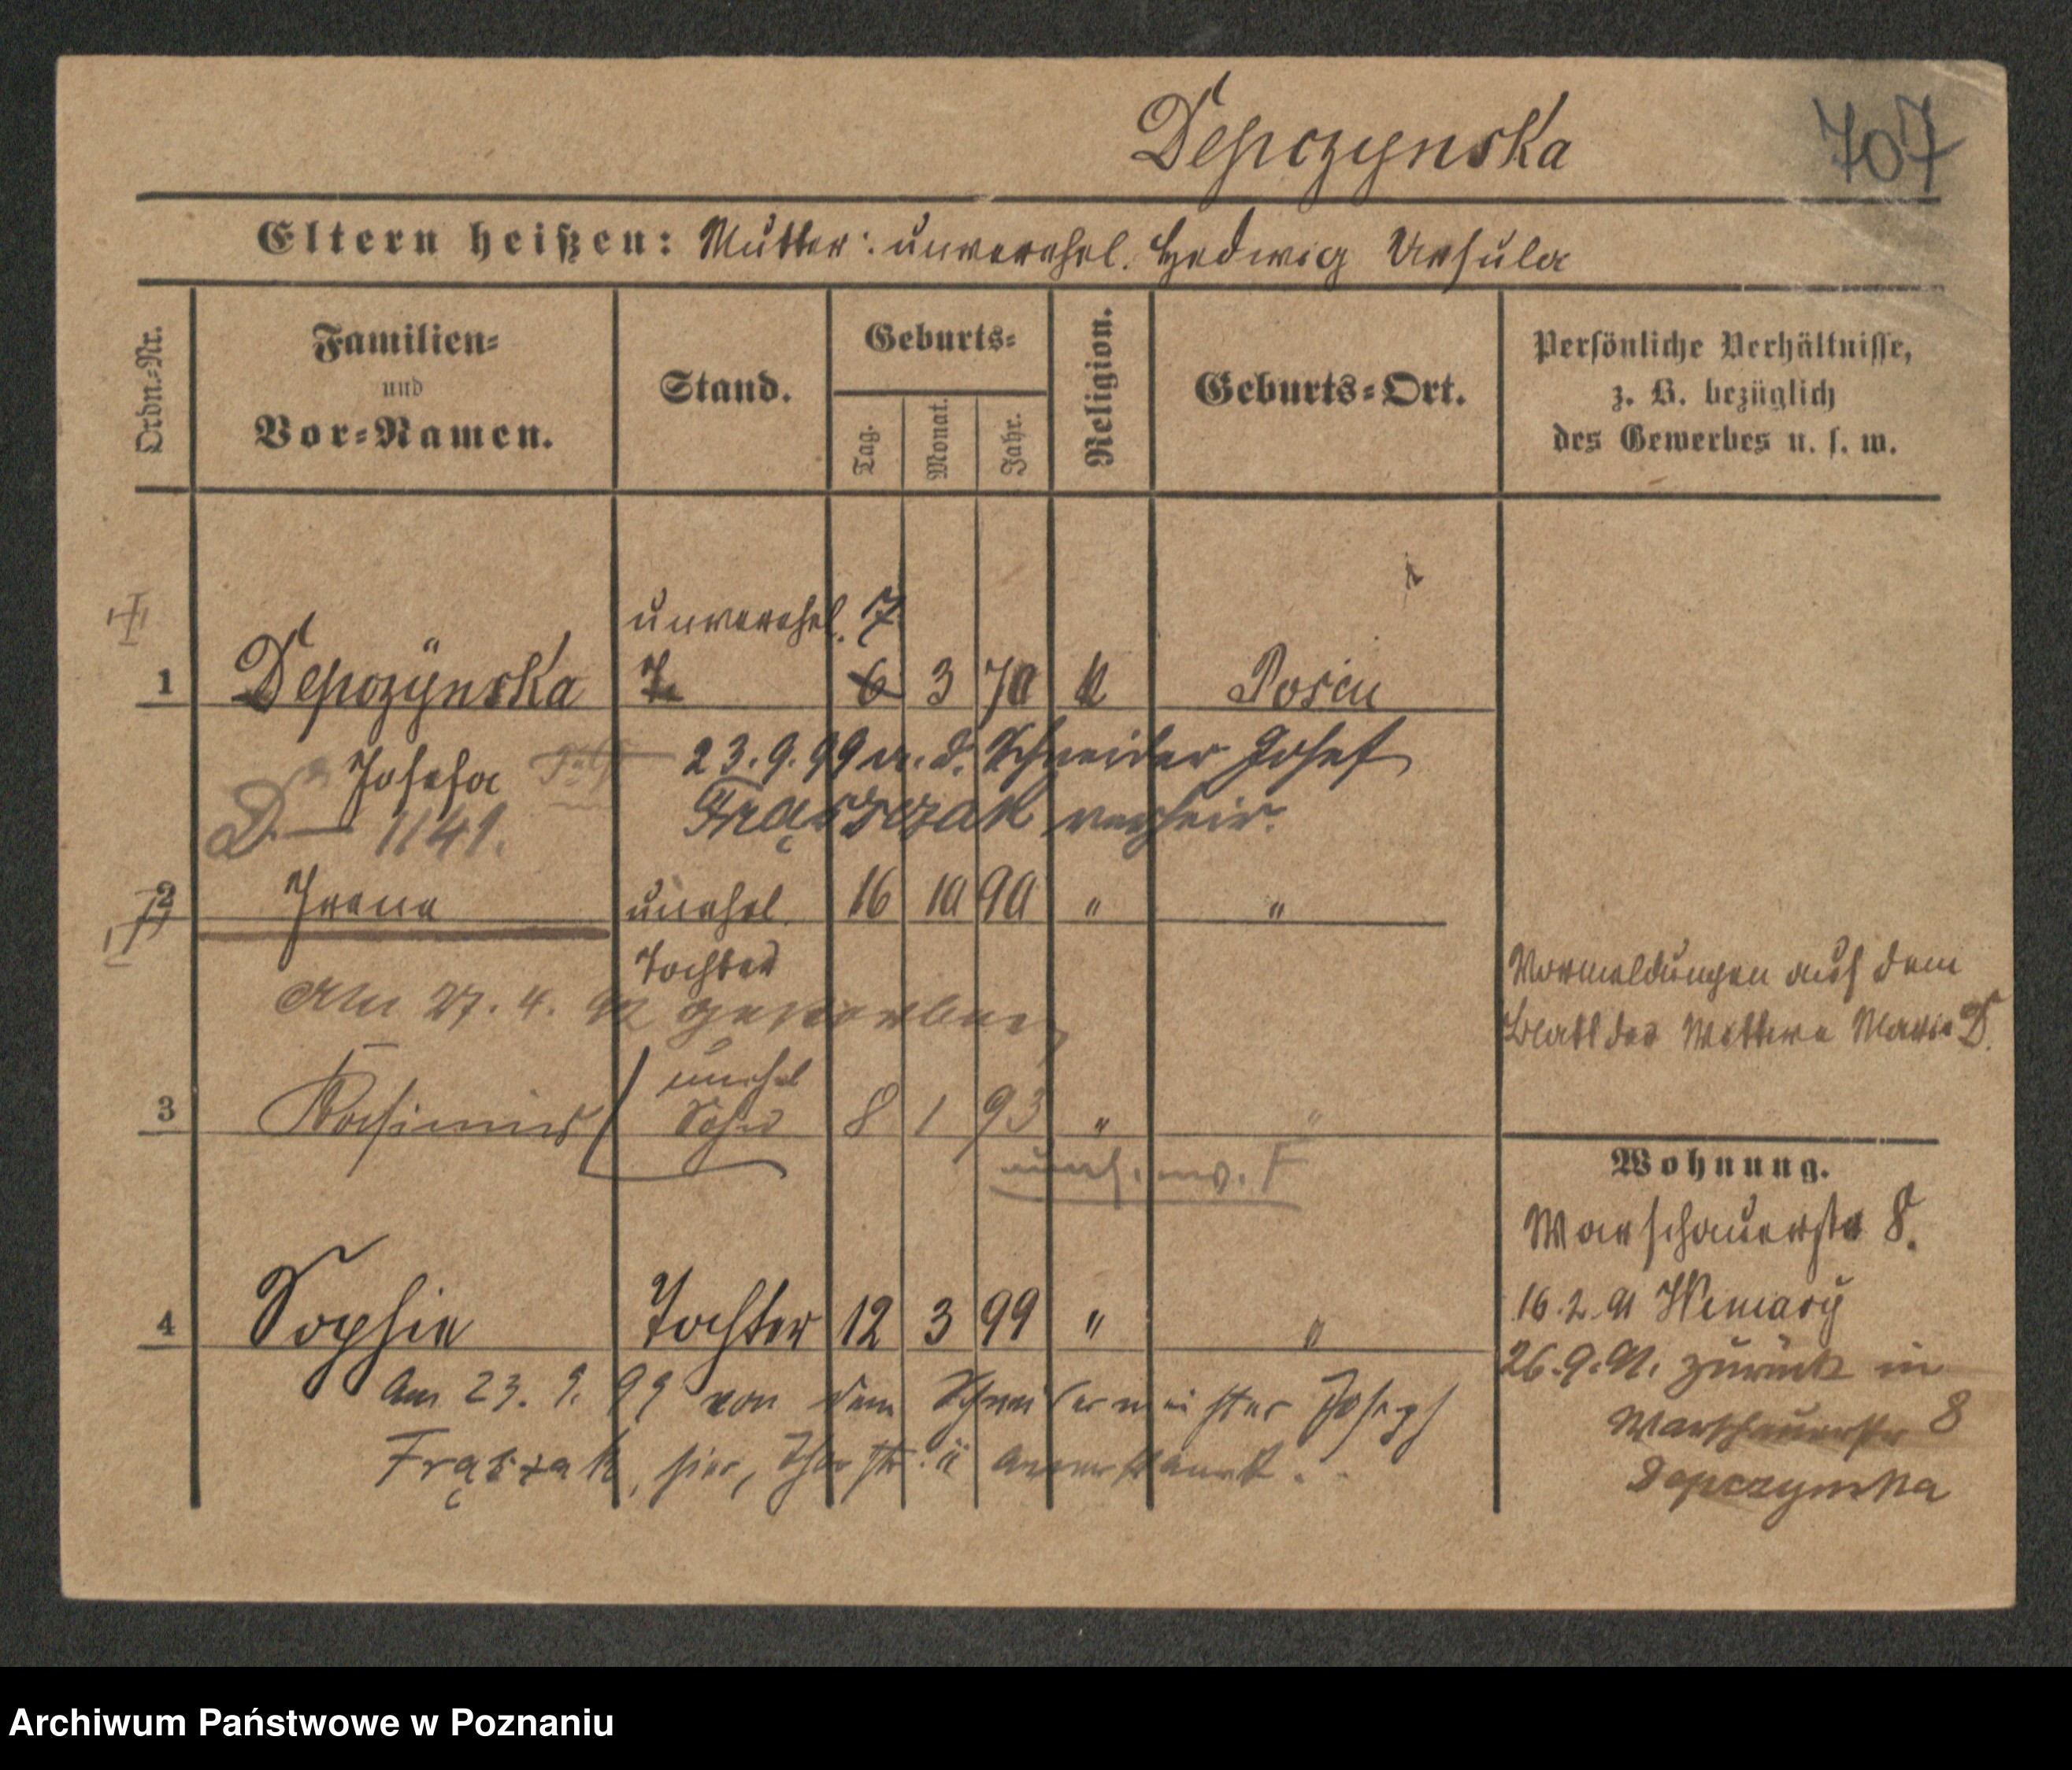 Depczynska
707
Eltern heißen: Mutter: unverehel. Hedwig Ursula
Ordn.-Nr.
Familien-
und
Vor-Namen.
Stand.
Geburts-
Tag.
Monat.
Jahr.
Religion.
Geburts-Ort.
Persönliche Verhältnisse,
z. B. bezüglich
des Gewerbes u. s. w.
unverehel. 7
1 Depczynska 6 3 70 k Posen
Josefa 23.9.99 m. d. Schneider Josef
D— 1141. Frąszczak verheir.
2 Irene unehel. 16 10 90 " "
Tochter
Am 27. 4. 92 gestorben
Vormeldungen auf dem
Blatt der Mutter Marie D.
unehel
3 Kasimir Sohn 8 1 93 " "
Wohnung.
Warschauerstr 8.
4 Sophie Tochter 12 3 99 " "
16.2.91 Wemary
26.9.91. zurück in
Warschauerstr 8
Depczynska
Am 23. 9. 99 von dem Schneidermeister Joseph
Frąszak, hier, anerkannt.